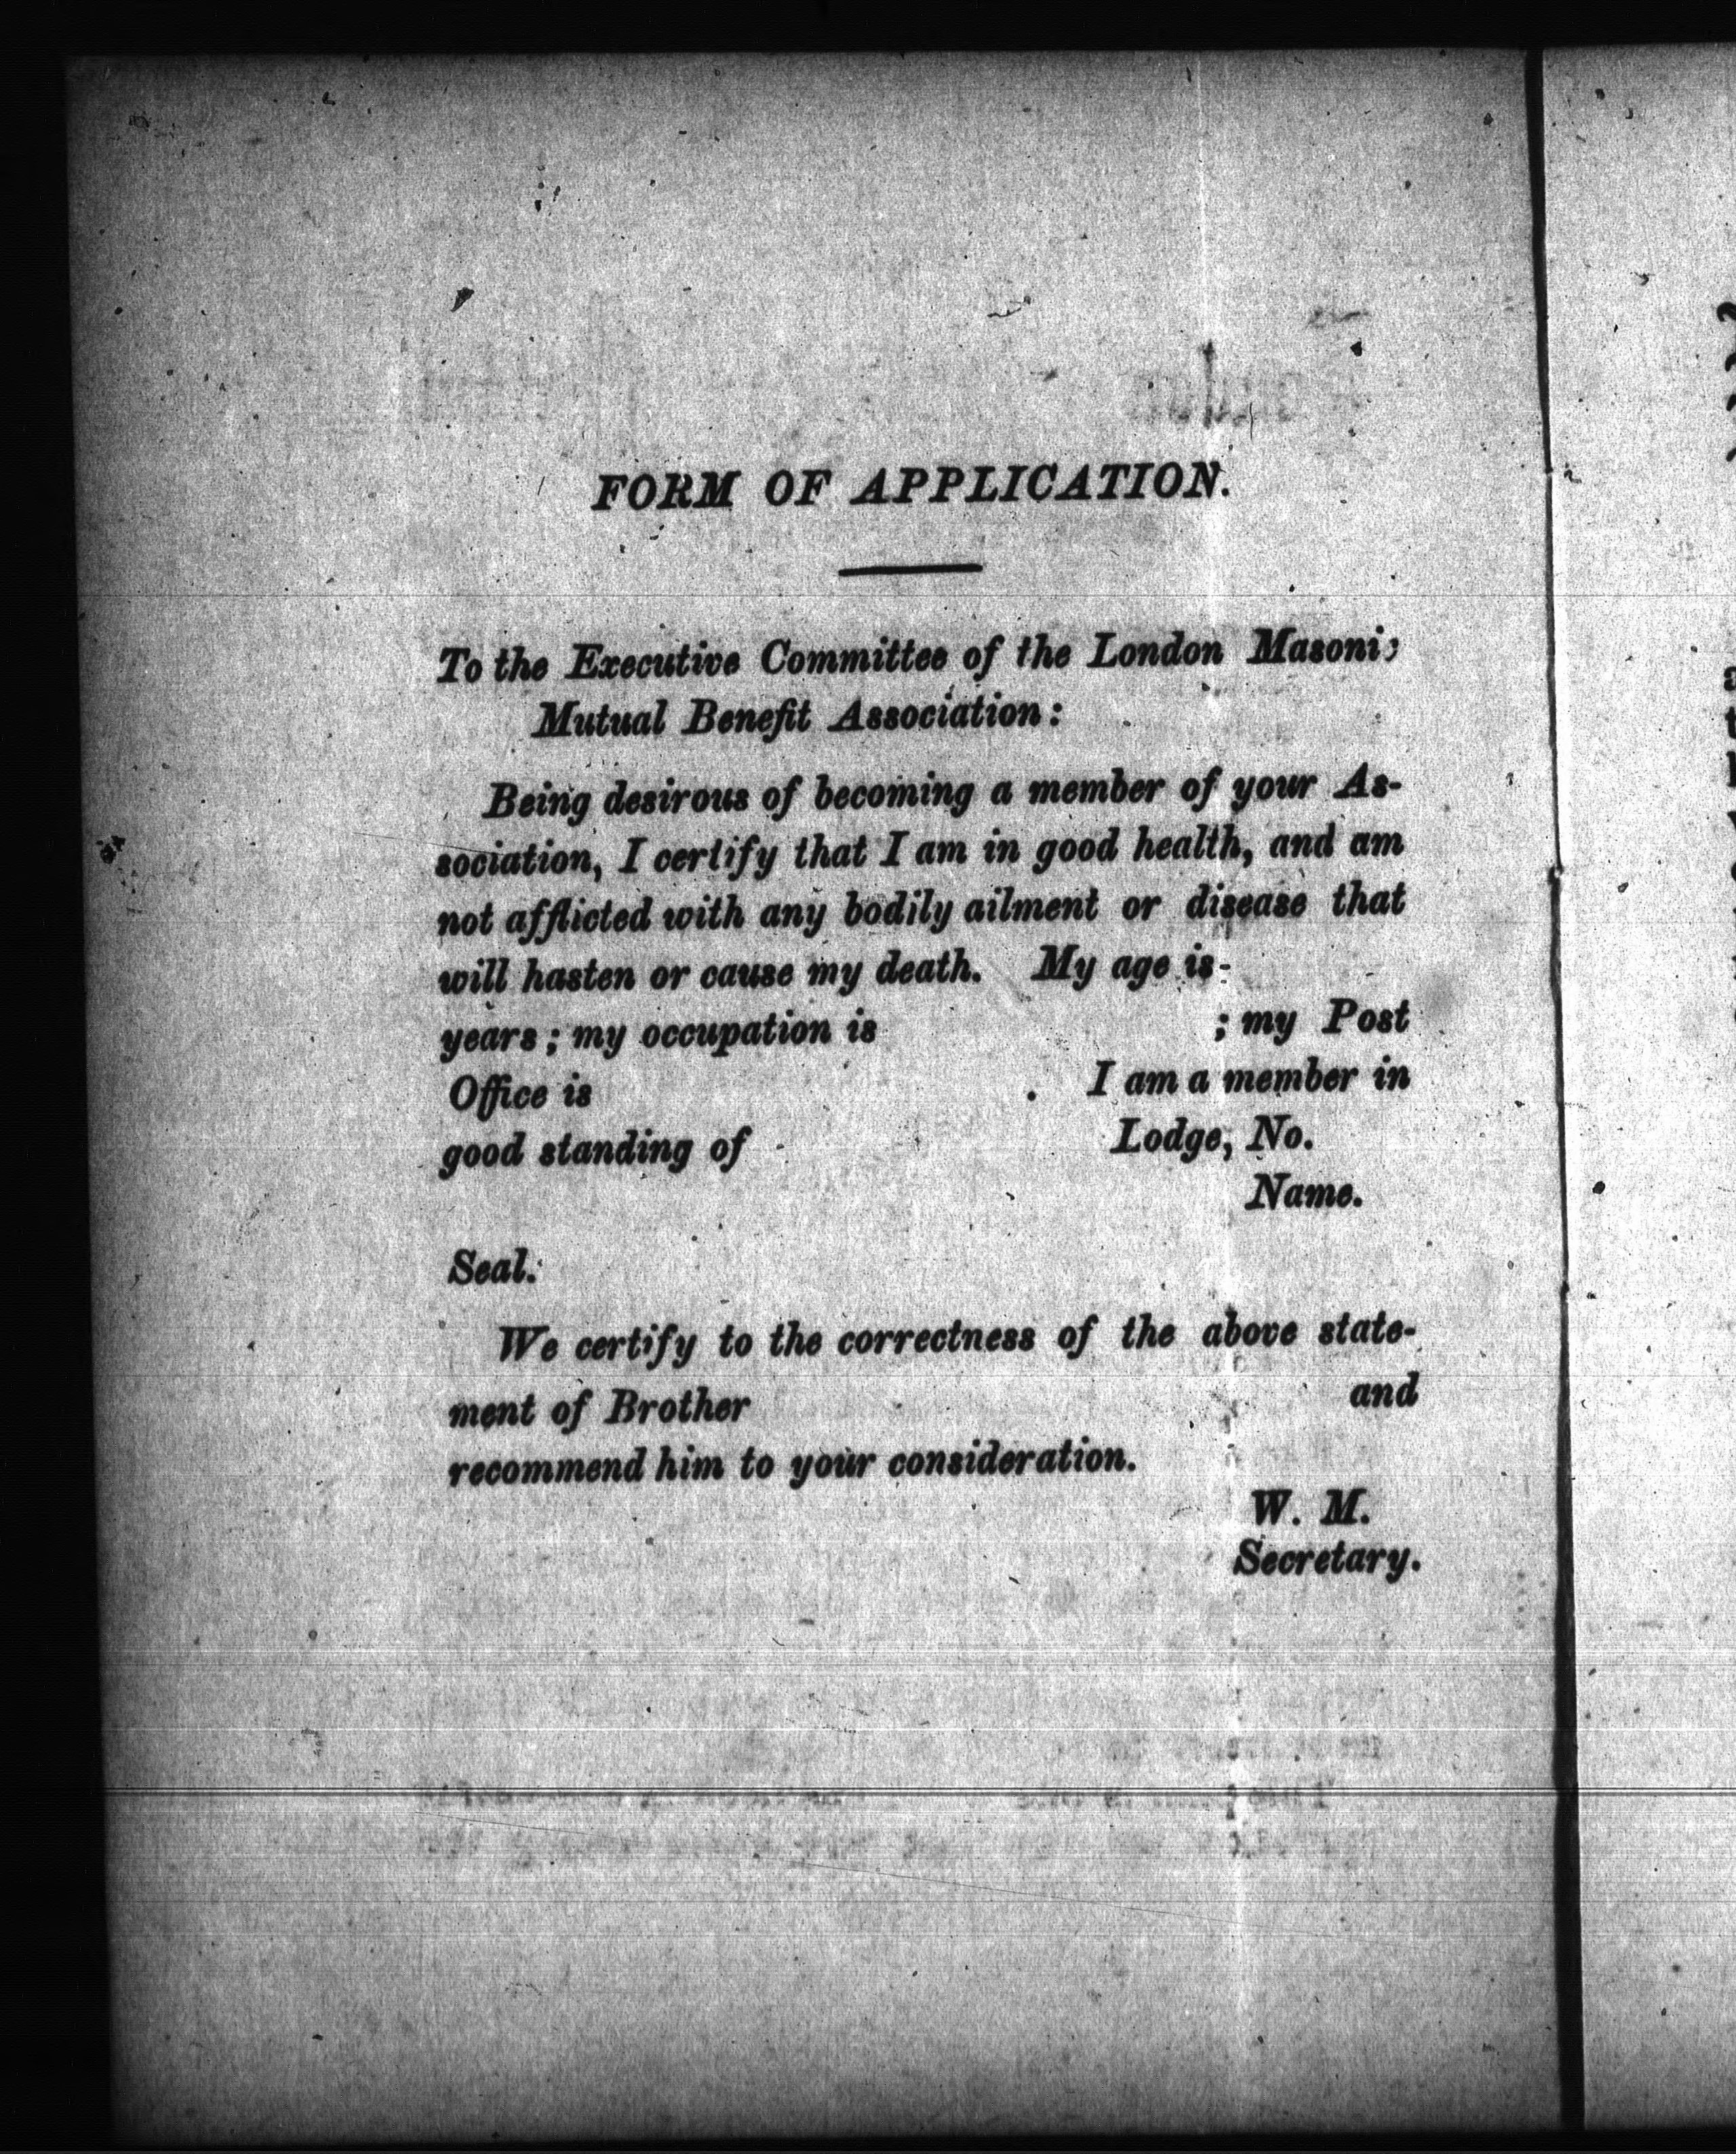 FORM OF APPLICATION.
To the Executive Committee of the London Masonic
Mutual Benefit Association:
Being desirous of becoming a member of your As-
sociation, I certify that I am in good health, and am
not afflicted with any bodily ailment or disease that
will hasten or cause my death. My age is
years; my occupation is ; my Post
Office is . I am a member in
good standing of Lodge, No.
Name.
Seal.
We certify to the correctness of the above state-
ment of Brother and
recommend him to your consideration.
W. M.
Secretary.